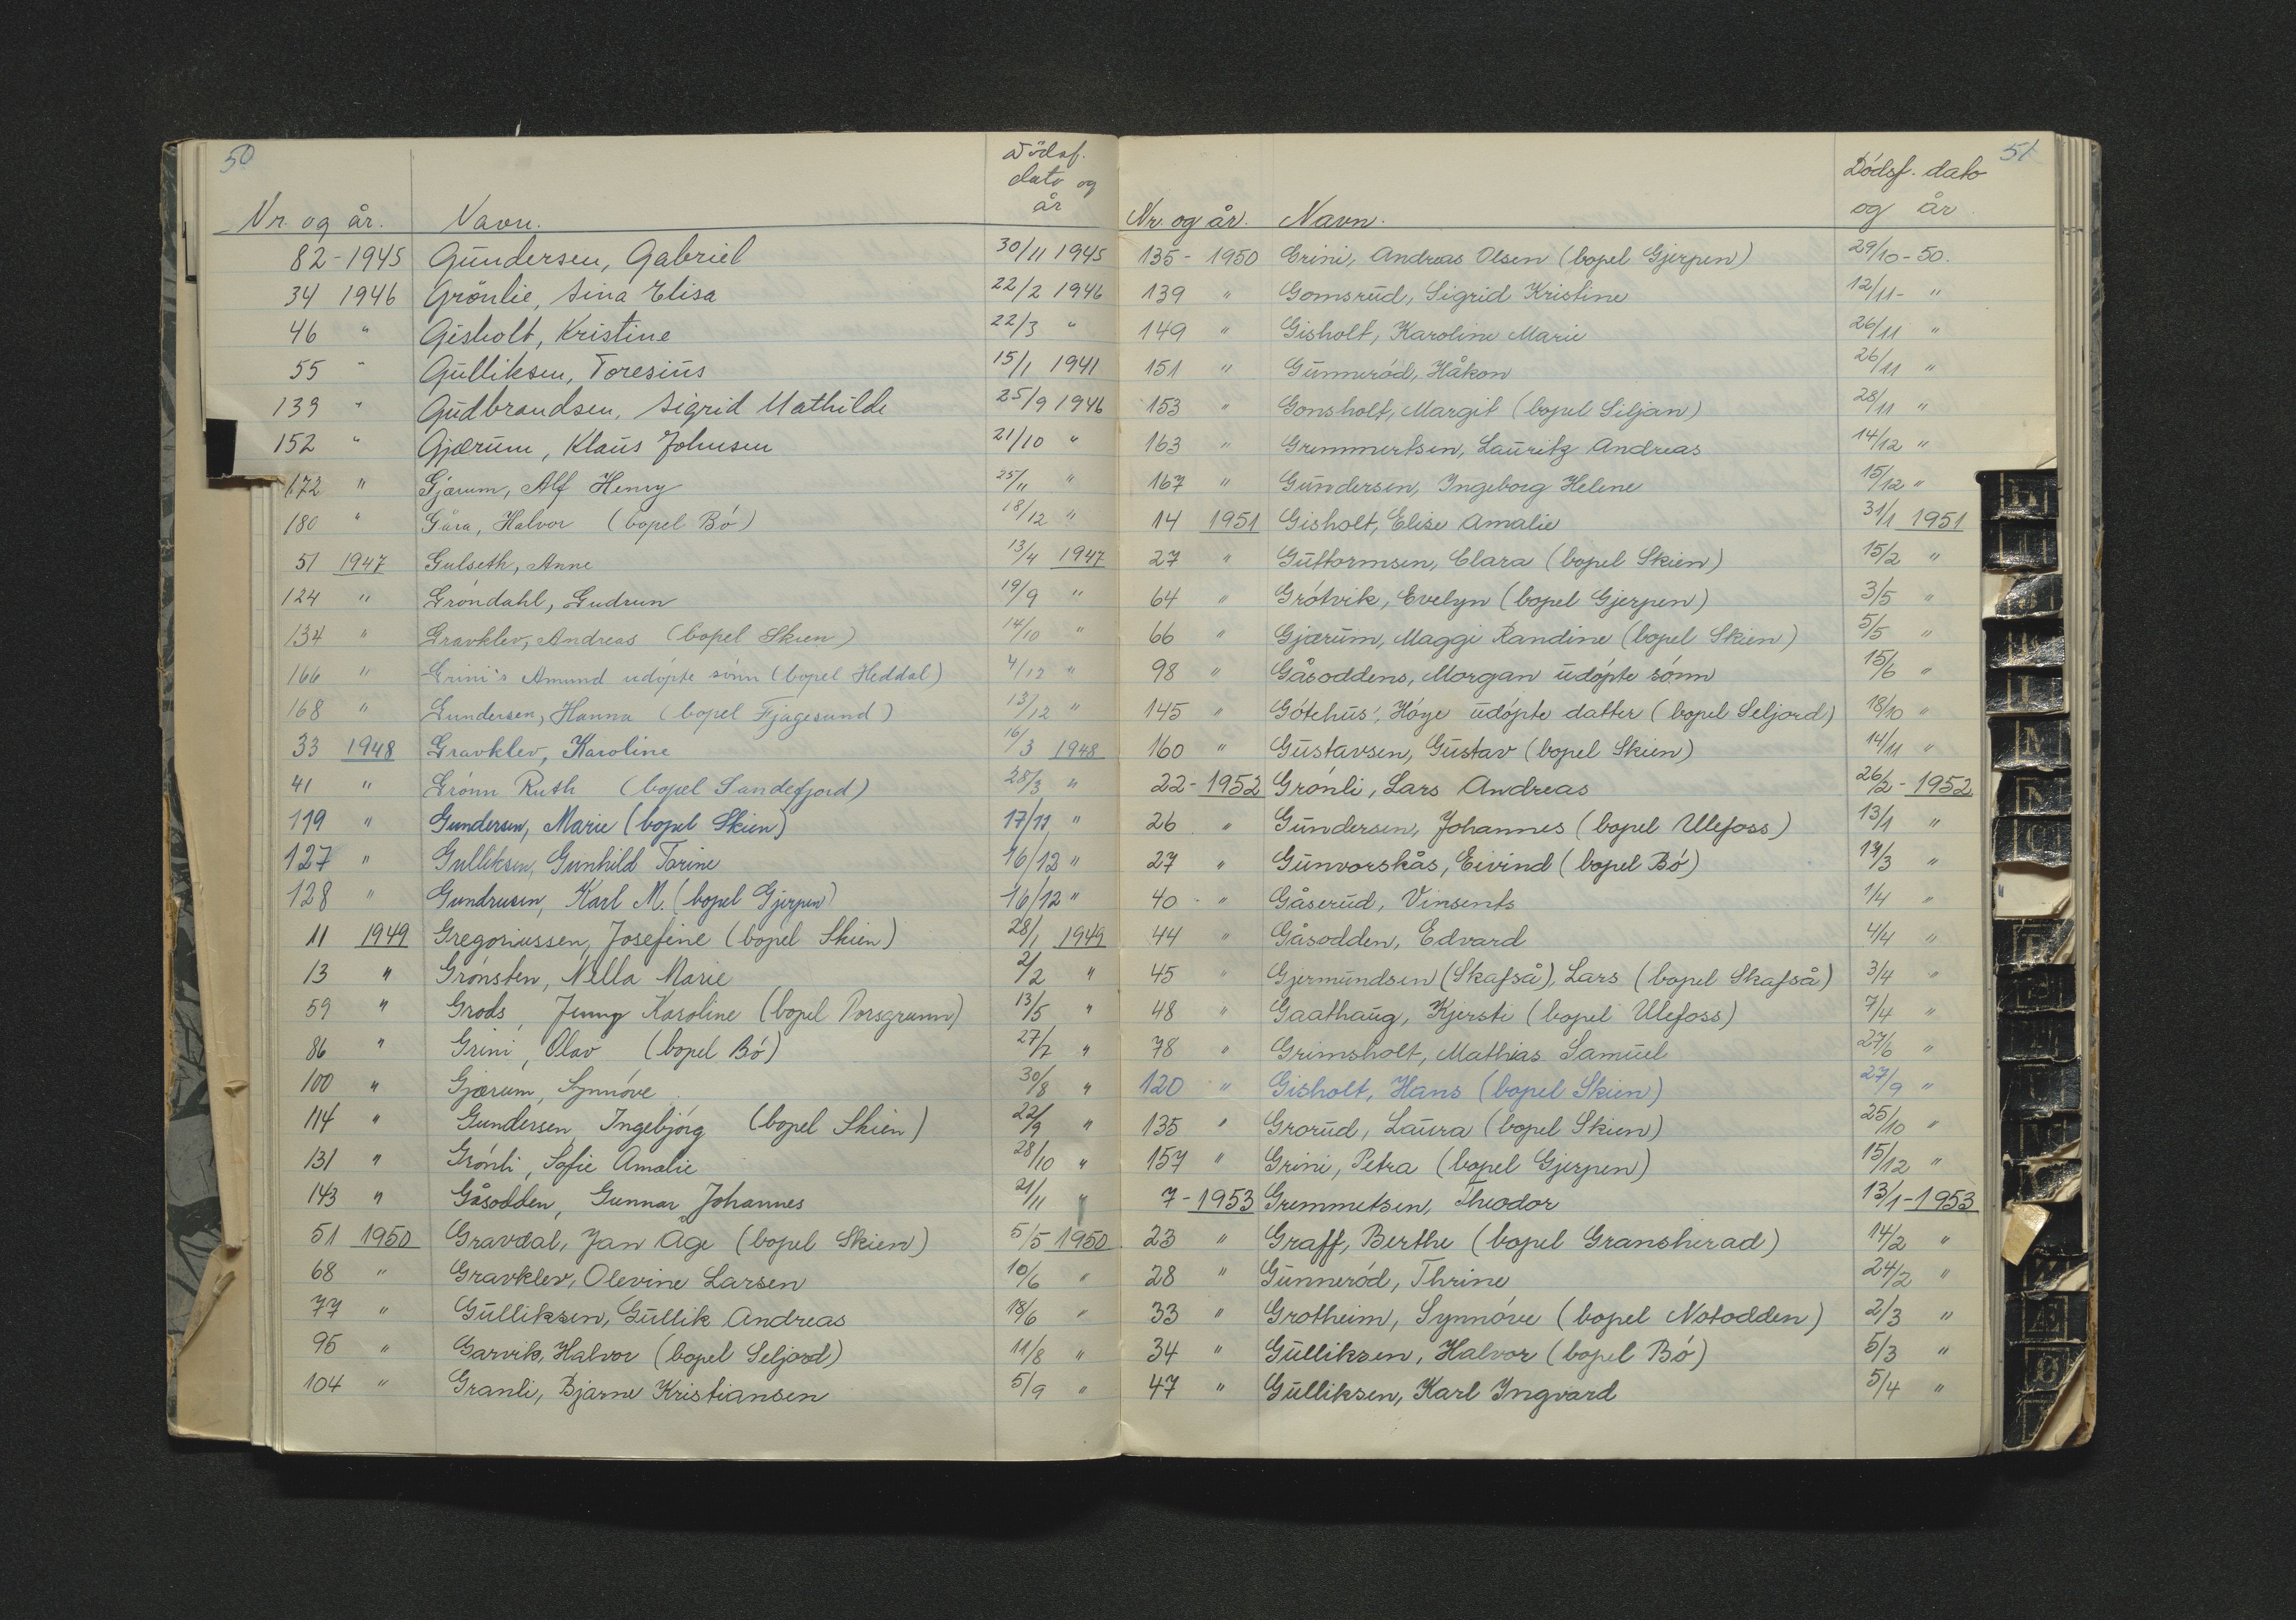 50
Nr. og år. Navn. Dödsf. dato og år
82 - 1945 Gundersen, Gabriel 30/11 1945
34 1946 Grönlie, Sina Elisa 22/2 1946
46 " Gisholt, Kristine 22/3 "
55 " Gulliksen, Toresius 15/1 1941
139 " Gudbrandsen, Sigrid Mathilde 25/9 1946
152 " Gjærum, Klaus Johnsen 21/10 "
172 " Gjærum, Alf Henry 25/11 "
180 " Gåra, Halvor (bopel Bó) 18/12 "
51 1947 Gulseth, Anne 13/4 1947
124 " Gróndahl, Gudrun 19/9 "
134 " Gravklev, Andreas (bopel Skien) 14/10 "
166 " Grini's Amund udópte sónn (bopel Heddal) 4/12 "
168 " Gundersen, Hanna (bopel Fjagesund) 13/12 "
33 1948 Gravklev, Karoline 16/3 1948
41 " Grónn Ruth (bopel Sandefjord) 28/3 "
119 " Gundersen, Marie (bopel Skien) 17/11 "
127 " Gulliksen, Gunhild Torine 16/12 "
128 " Gundersen, Karl M. (bopel Gjerpen) 16/12 "
11 1949 Gregoriussen, Josefine (bopel Skien) 28/1 1949
13 " Grónsten, Nilla Marie 2/2 "
59 " Grods, Jenny Karoline (bopel Porsgrunn) 13/5 "
86 " Grini, Olav (bopel Bó) 27/7 "
100 " Gjærum, Synnóve 30/8 "
114 " Gundersen, Ingebjórg (bopel Skien) 22/9 "
131 " Grónli, Sofie Amalie 28/10 "
143 " Gåsodden, Gunnar Johannes 21/11 "
51 1950 Gravdal, Jan Åge (bopel Skien) 5/5 1950
68 " Gravklev, Olevine Larsen 10/6 "
77 " Gulliksen, Gullik Andreas 18/6 "
95 " Garvik, Halvor (bopel Seljord) 11/8 "
104 " Granli, Bjarne Kristiansen 5/9 "
51
Nr. og år. Navn. Dódsf. dato og år
135 - 1950 Grini, Andreas Olsen (bopel Gjerpen) 29/10 - 50.
139 " Gomsrud, Sigrid Kristine 12/11 - "
149 " Gisholt, Karoline Marie 26/11 "
151 " Gunneród, Håkon 26/11 "
153 " Gonsholt, Margit (bopel Siljan) 28/11 "
163 " Gremmertsen, Lauritz Andreas 14/12 "
167 " Gundersen, Ingeborg Helene 15/12 "
14 1951 Gisholt, Elise Amalie 31/1 1951
27 " Guttormsen, Clara (bopel Skien) 15/2 "
64 " Grótvik, Evelyn (bopel Gjerpen) 3/5 "
66 " Gjærum, Maggi Randine (bopel Skien) 5/5 "
98 " Gåsoddens, Morgan udópte sónn 15/6 "
145 " Gótehus', Hóye udópte datter (bopel Seljord) 18/10 "
160 " Gustavsen, Gustav (bopel Skien) 14/11 "
22 - 1952 Grónli, Lars Andreas 26/2 - 1952
26 " Gundersen, Johannes (bopel Ulefoss) 13/1 "
27 " Gunvorskås, Eivind (bopel Bó) /3 "
40 - " Gåserud, Vinsents 1/4 "
44 " Gåsodden, Edvard 4/4 "
45 " Gjermundsen (Skafså), Lars (bopel Skafså) 3/4 "
48 " Gaathaug, Kjersti (bopel Ulefoss) 7/4 "
78 " Grimsholt, Mathias Samuel 27/6 "
120 " Gisholt, Hans (bopel Skien) 27/9 "
135 " Grorud, Laura (bopel Skien) 25/10 "
157 " Grini, Petra (bopel Gjerpen) 15/12 "
7 - 1953 Gremmetsen, Theodor 13/1 - 1953
23 " Graff, Berthe (bopel Gransherad) 14/2 "
28 " Gunneród, Thrine 24/2 "
33 " Grotheim, Synnóve (bopel Notodden) 2/3 "
34 " Gulliksen, Halvor (bopel Bó) 5/3 "
47 " Gulliksen, Karl Ingvard 5/4 "